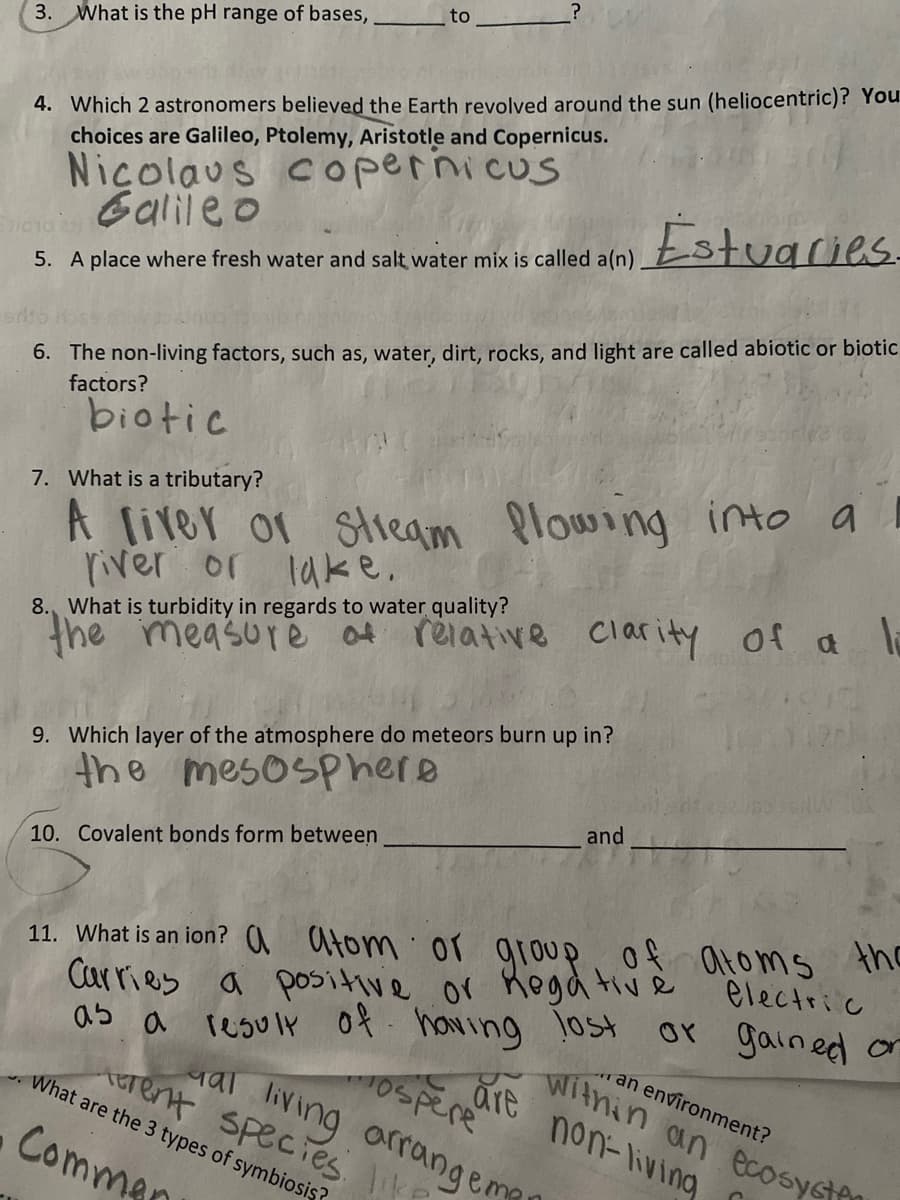 3. What is the pH range of bases, ______ to ________?
4. Which 2 astronomers believed the Earth revolved around the sun (heliocentric)? You
choices are Galileo, Ptolemy, Aristotle and Copernicus.
Nicolaus copernicus
Galileo
5. A place where fresh water and salt water mix is called a(n) Estuaries
6. The non-living factors, such as, water, dirt, rocks, and light are called abiotic or biotic
factors?
biotic
7. What is a tributary?
A river or stream flowing into a
river or lake.
8. What is turbidity in regards to water quality?
the measure of relative clarity of a
9. Which layer of the atmosphere do meteors burn up in?
the mesosphere
10. Covalent bonds form between ________________ and ________________
11. What is an ion? a atom or group of atoms
Carries a positive or negative electric
as a result of having lost or gained
an environment?
are within an ecosyste
living arrangeme
non-living
species like
What are the 3 types of symbiosis?
Commen